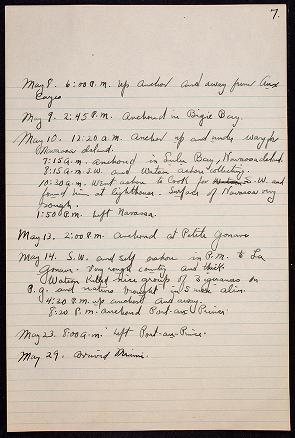 7.
May 8. 6:00 P.M. up anchor and away from Aux
Cayes
May 9. 2:45 P.M. Anchored in Bizie Bay.
May 10. 12:20 a.m. Anchor up and under way for
Navassa Island.
7:15 a.m. anchored in Lulu Bay, Navassa Island.
8:15 a.m. S.W. and Watson ashore collecting.
10:30 a.m. Went ashore to look for S.W. and
found him at lighthouse. Surface of Navassa very
rough.
1:50 P.M. left Navassa.
May 13. 2:00 P.M. anchored at Petite Gonave
May 14. S.W. and self ashore in P.M. to La
Gonave. Very rough country and thick.
Watson killed nice group of 3 iguanas on
P.G. and natives brought in 5 more alive.
4:20 P.M. up anchor and away.
8:20 P.M. anchored Port-aux-Prince.
May 23. 8:00 a.m. left Port-aux-Prince.
May 29. Arrived Miami.